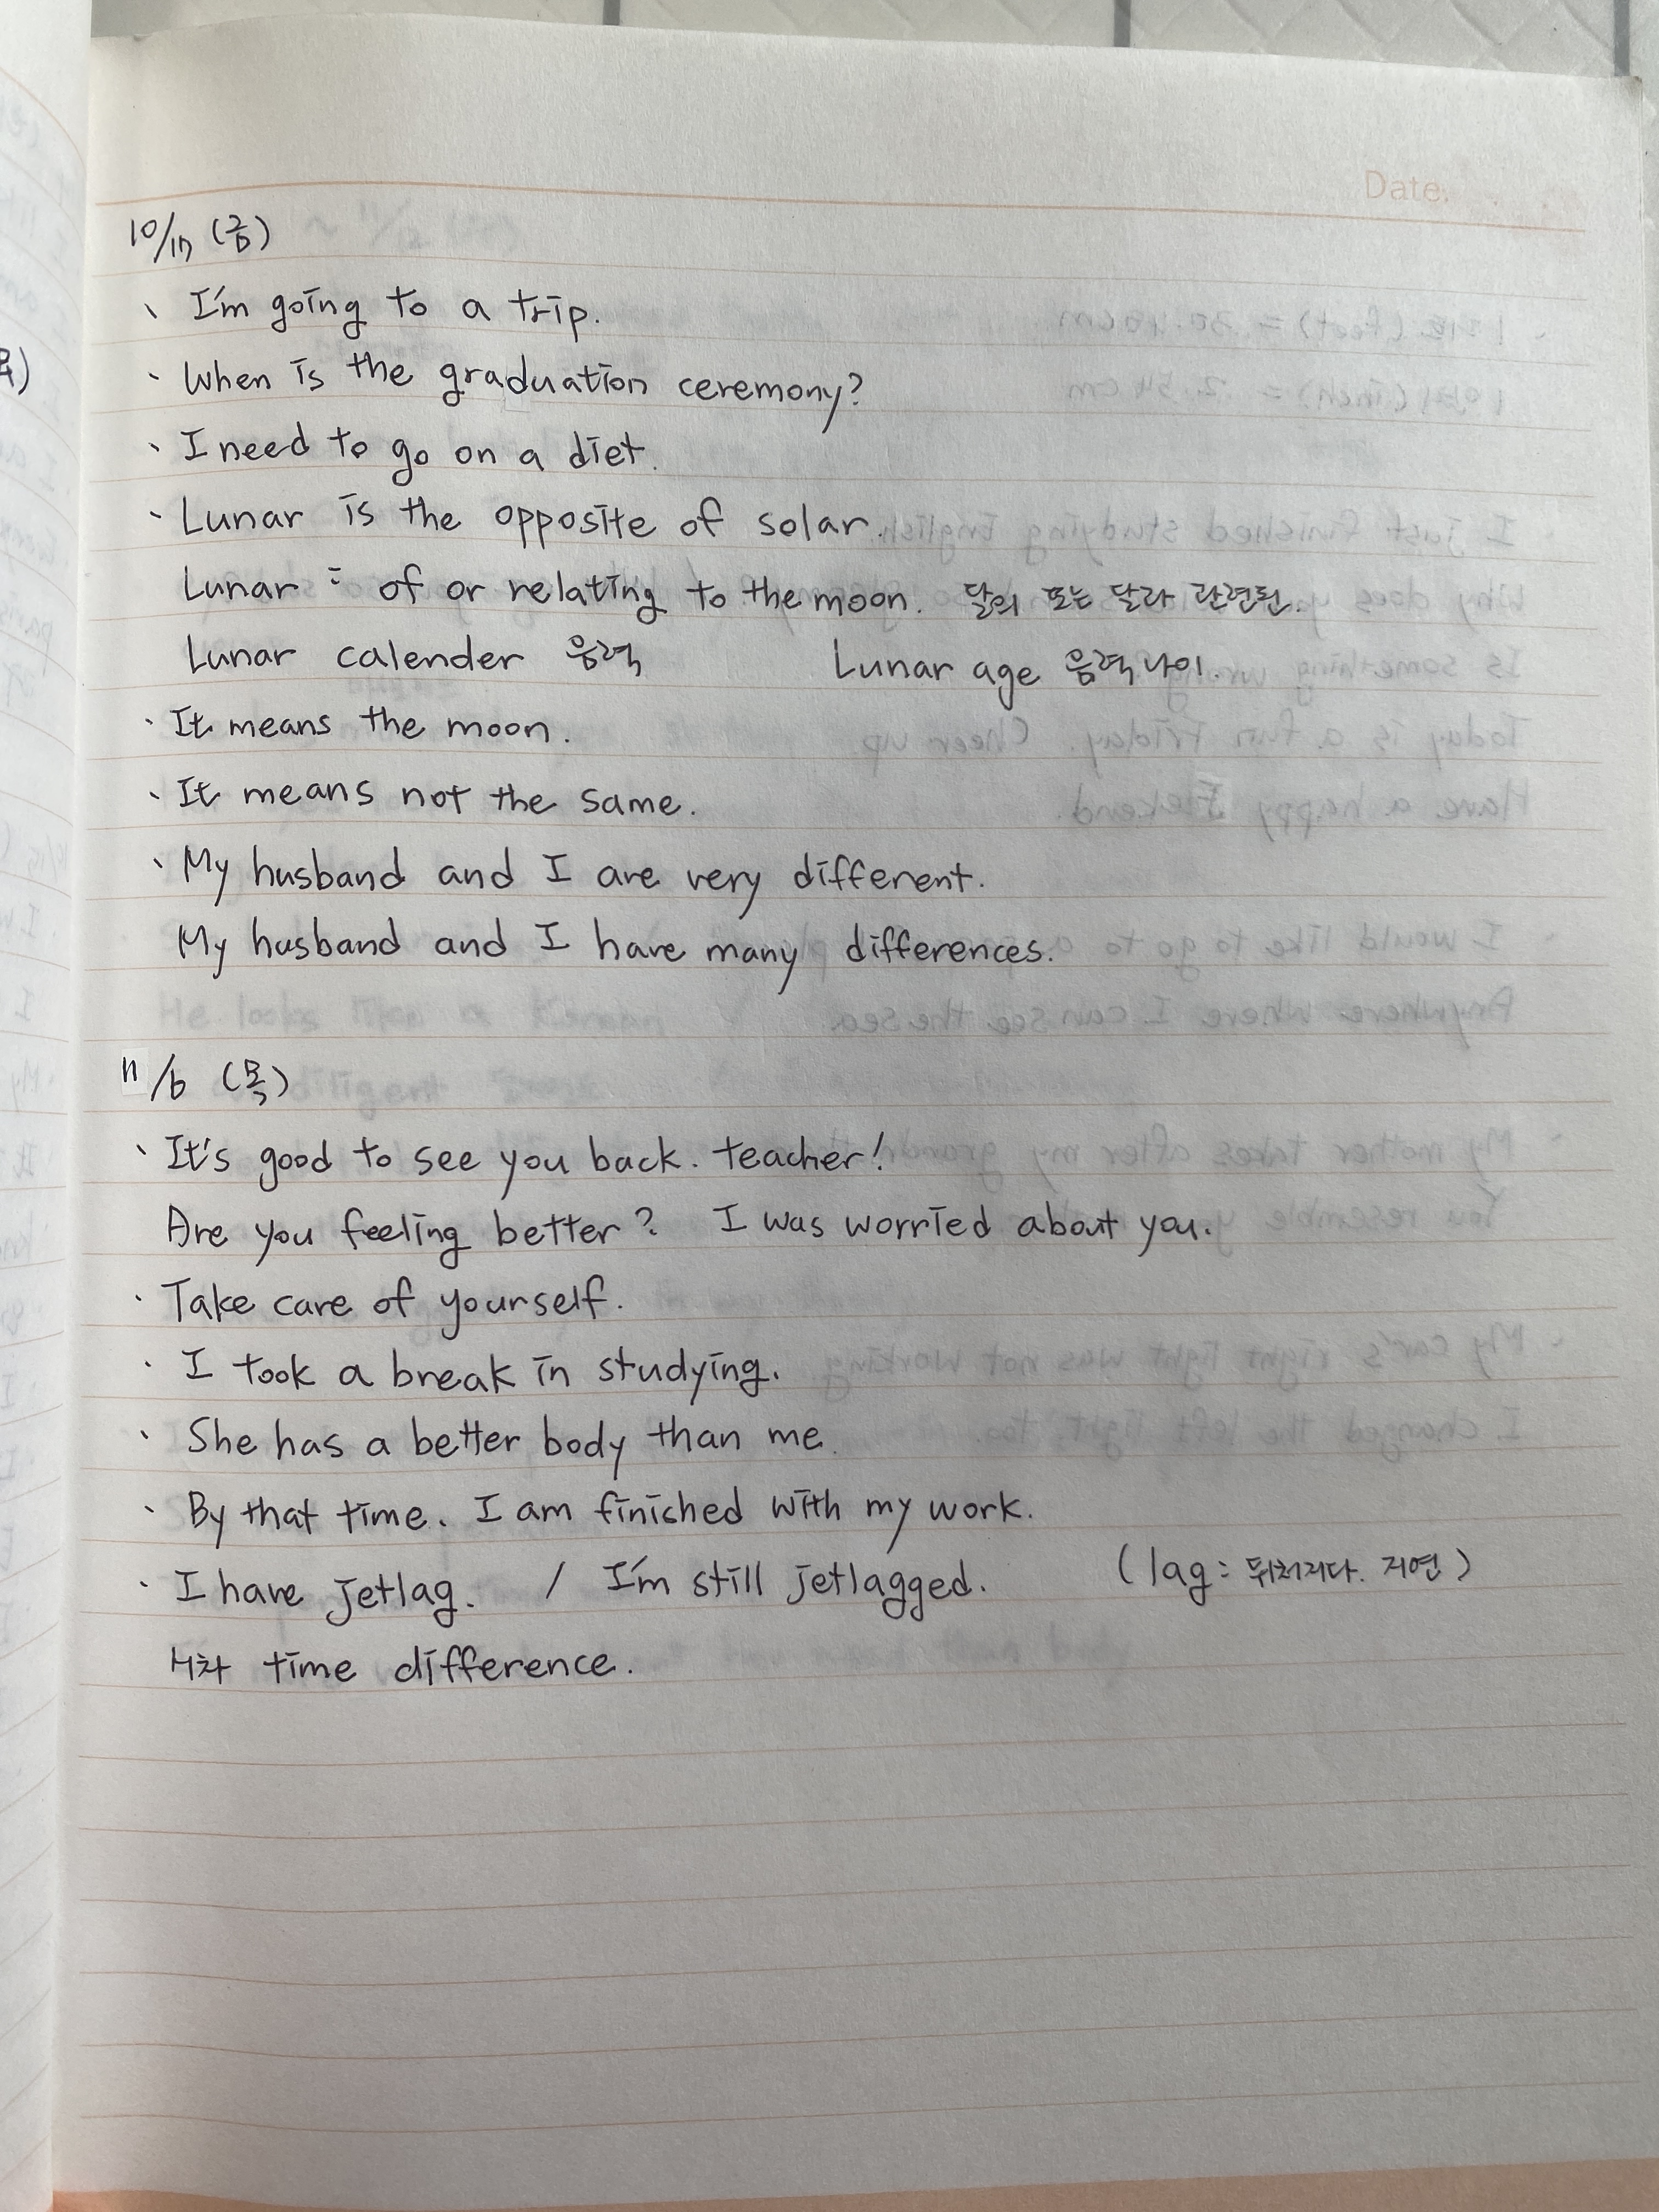 Date.
10/17 (금)
` I'm going to a trip.
` When is the graduation ceremony?
` I need to go on a diet.
` Lunar is the opposite of solar.
Lunar : of or relating to the moon. 달의 또는 달과 관련된.
Lunar calender 음력 Lunar age 음력나이.
` It means the moon.
` It means not the same.
` My husband and I are very different.
My husband and I have many differences.
11/6 (목)
` It's good to see you back. teacher!
Are you feeling better? I was worried about you.
· Take care of yourself.
· I took a break in studying.
` She has a better body than me.
` By that time. I am finished with my work.
· I have jetlag. / I'm still jetlagged. (lag: 뒤처지다. 지연)
시차 time difference.